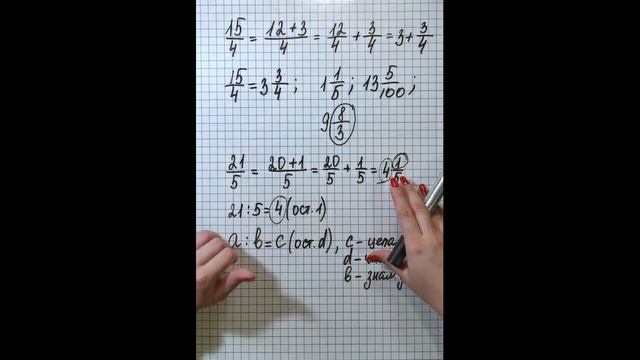 15/4 = 12+3/4 = 12/4 + 3/4 = 3 + 3/4
15/4 = 3 3/4 ; 1 1/5 ; 13 5/100 ;
9 8/3
21/5 = 20+1/5 = 20/5 + 1/5 = 4 1/5
21 : 5 = 4 (ост. 1)
а : в = с (ост. d), с –
d –
в – знам.